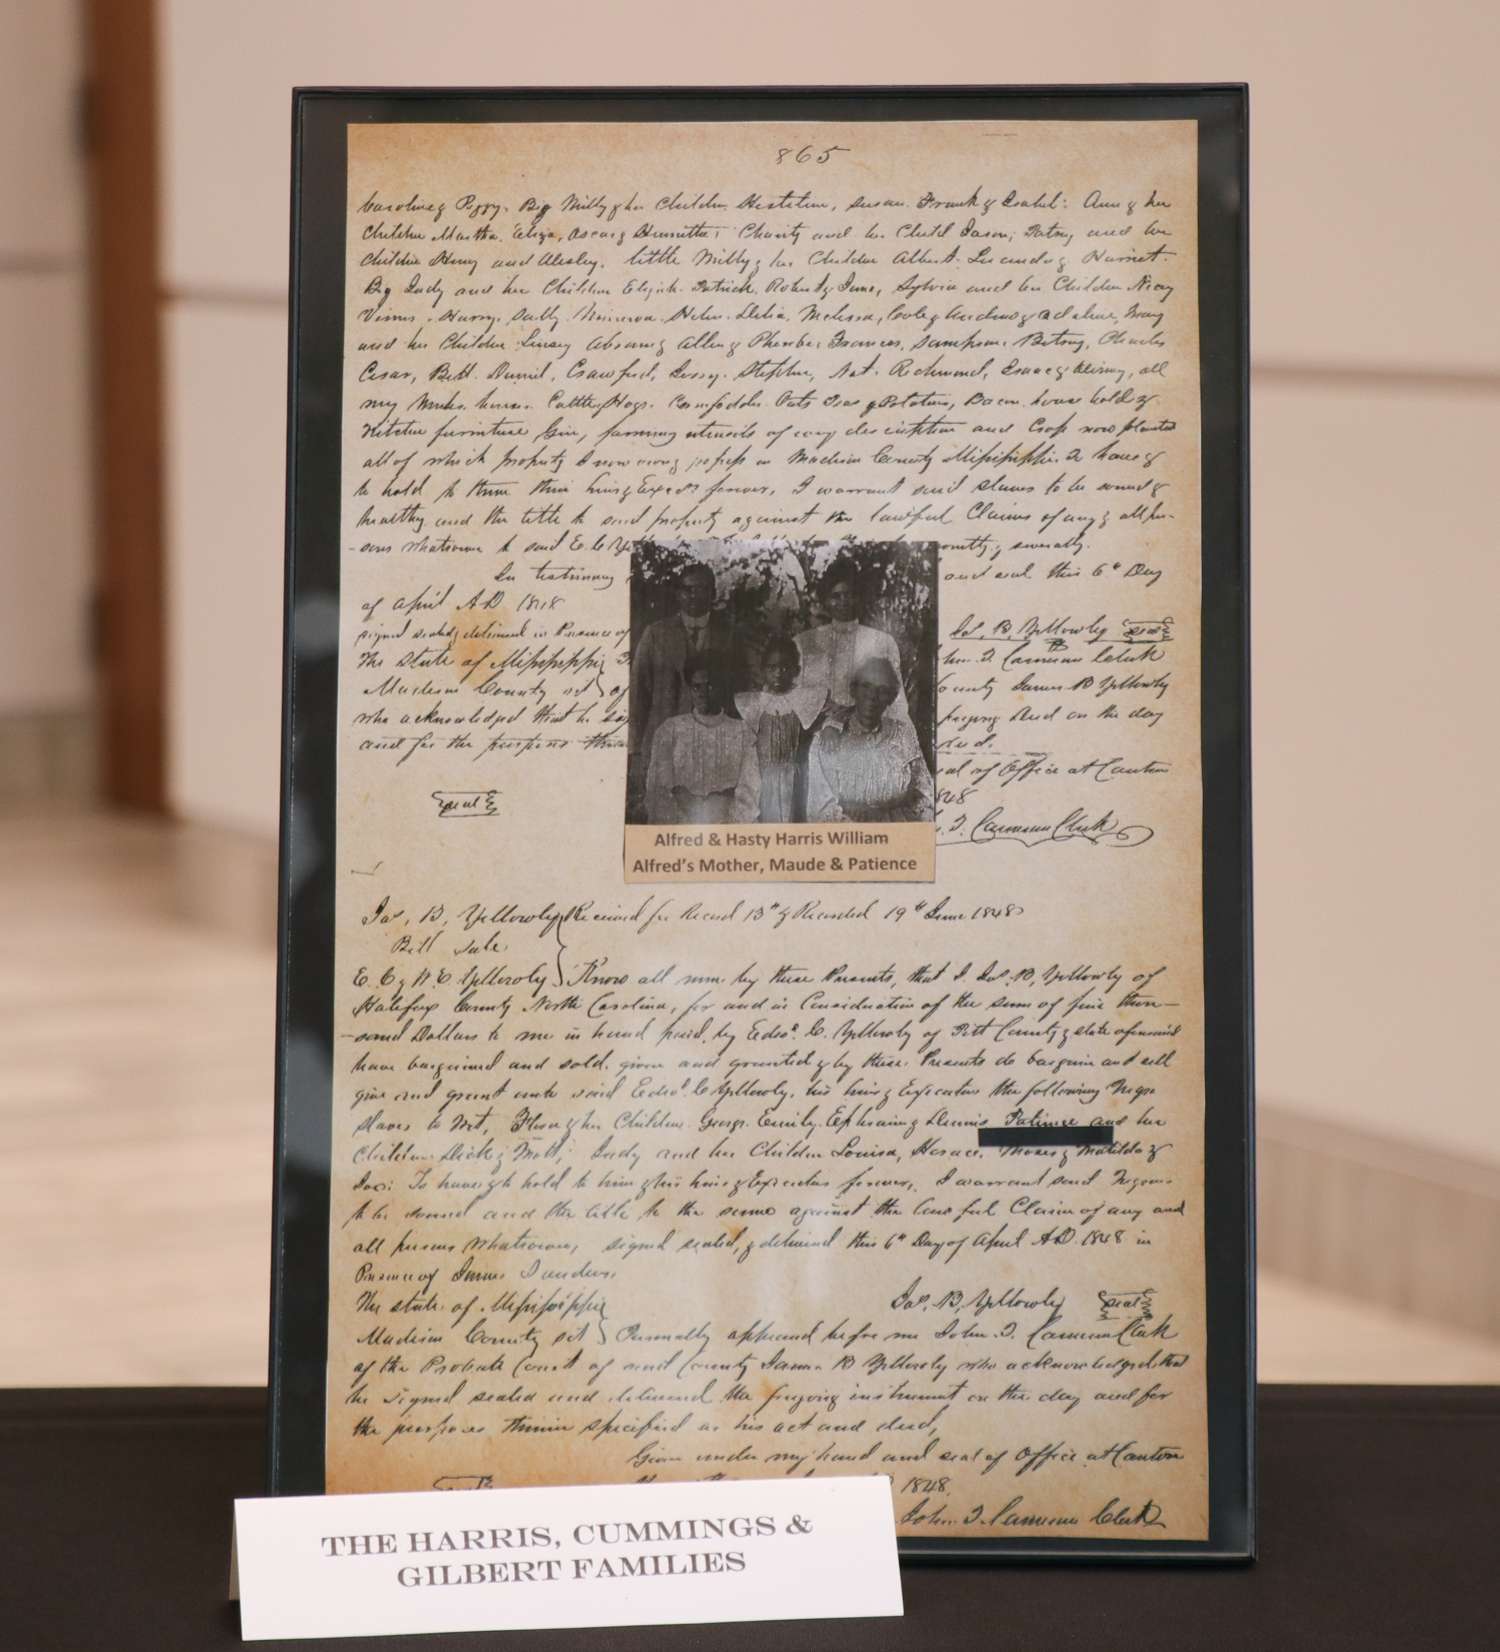 865
Caroline & Peggy. Big Milly & her Children Hesteline, Susan. Frank & Isabel: Ann & her
Children Martha. Eliza, Oscar & Henrietta; Charity and her Child Jason; Patsy and her
Children Henry and Wesley. little Milly & her Children Albert. Lucinda & Harriet.
Big Judy and her Children Elijah. Patrick, Robert & Jane, Sylvia and her Children
Harry. Sally. Minerva. Helen. Delia. Melissa, & Adaline,
and her Children Linsey Absum & Allen & Phoebe; Frances, Sampson. Betsey, Charles
Cesar, Bill. Daniel, Crawford, Stephen, Nat. Richmond, Isaac & all
my Mules. horses. Cattle, Hogs. Corn fodder. Oats Peas & Potatoes, Bacon. house hold &
Kitchen furniture Gin, farming utensils of every description and Crop now planted
all of which property I now own & possess in Madison County Mississippi. To have &
to hold to them their heirs & Exec forever, I warrant said slaves to be sound &
healthy and the title to said property against the lawful Claims of any & all per-
-sons whatsoever to said E. C. severally.
In testimony and seal this 6th Day
of April AD. 1848
signed sealed & delivered in Presence of Jas. B, Yellowley seal
The state of Mississippi T. Cameron Clerk
Madison County sct of County James B Yellowley
who acknowledged that he sig foregoing Deed on the day
and for the purposes there deed.
seal of Office at Canton
seal 1848
T. Cameron Clerk
Alfred & Hasty Harris William
Alfred's Mother, Maude & Patience
Jas, B, Yellowley Received for Record 13th & Recorded 19th June 1848
Bill Sale
E. C & W. E Yellowley Know all men by these Presents, that I Jas. B, Yellowley of
Halifax County North Carolina, for and in Consideration of the sum of five thou-
-sand Dollars to me in hand paid, by Edwd. C. Yellowley of Pitt County & state aforesaid
have bargained and sold. given and granted & by these Presents do bargain and sell
give and grant unto said Edwd. C Yellowley, his heirs & Executors the following Negro
slaves to Wit, & her Children George. Emily. Ephraim & Dennis Patience and her
Children Dick & Matt; Judy and her Children Louisa, Horace. Moses & Matilda &
Joe: To have & to hold to him & his heirs & Executors forever, I warrant said Negroes
to be sound and the title to the same against the lawful Claim of any and
all persons whatsoever, signed sealed, & delivered this 6th Day of April AD. 1848 in
Presence of James Sanders.
The state of Mississippi Jas, B, Yellowley seal
Madison County sct Personally appeared before me John. T. Cameron Clerk
of the Probate Court of said County James B Yellowley who acknowledged that
he signed sealed and delivered the foregoing instrument on the day and for
the purposes therein specified as his act and deed,
Given under my hand and seal of Office at Canton
1848.
John. T. Cameron Clerk
THE HARRIS, CUMMINGS &
GILBERT FAMILIES